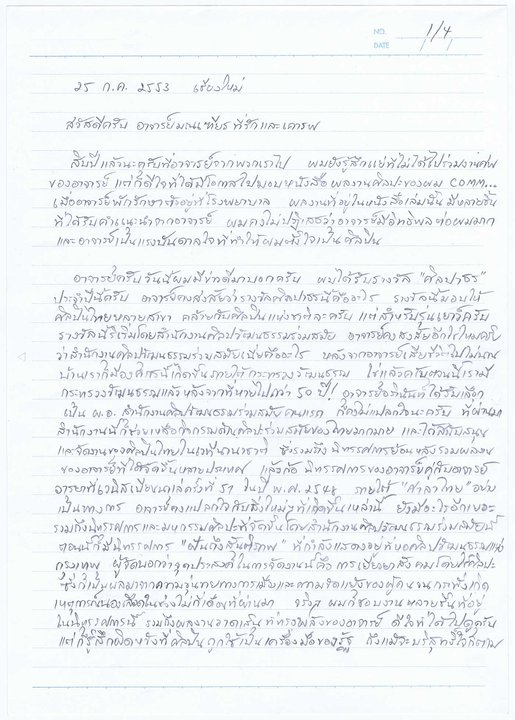 NO. 1/4
DATE
25 ก.ค. 2553 เชียงใหม่
สวัสดีครับ อาจารย์มณเฑียร ที่รักและเคารพ
สิบปีแล้วนะครับที่อาจารย์จากพวกเราไป ผมยังรู้สึกแย่ที่ไม่ได้ไปร่วมงานศพ
ของอาจารย์ แต่ก็ดีใจที่ได้มีโอกาสไปมอบหนังสือ ผลงานศิลปะของผม COMM...
เมื่ออาจารย์พักรักษาตัวอยู่ที่โรงพยาบาล ผลงานที่อยู่ในหนังสือเล่มนั้น มีหลายชิ้น
ที่ได้รับคำแนะนำจากอาจารย์ ผมคงไม่ปฏิเสธว่าอาจารย์มีอิทธิพลต่อผมมาก
และอาจารย์เป็นแรงบันดาลใจที่ทำให้ผมตั้งใจเป็นศิลปิน
อาจารย์ครับวันนี้ผมมีข่าวดีมาบอกครับ ผมได้รับรางวัล "ศิลปาธร"
ประจำปีนี้ครับ อาจารย์คงสงสัยว่ารางวัลศิลปาธรนี้คืออะไร รางวัลนี้มอบให้
ศิลปินไทยหลายสาขา คล้ายกับศิลปินแห่งชาติละครับ แต่สำหรับรุ่นเยาว์ครับ
รางวัลนี้ริเริ่มโดยสำนักงานศิลปวัฒนธรรมร่วมสมัย อาจารย์คงสงสัยอีกใช่ไหมครับ
ว่าสำนักงานศิลปวัฒนธรรมร่วมสมัยเนี่ยคืออะไร หลังจากอาจารย์เสียชีวิตไปไม่นาน
บ้านเราก็มีองค์กรนี้เกิดขึ้นภายใต้กระทรวงวัฒนธรรม ใช่แล้วครับตอนนี้เรามี
กระทรวงวัฒนธรรมแล้ว หลังจากที่หายไปกว่า 50 ปี! อาจารย์อภินันท์ได้รับเลือก
เป็น ผ.อ. สำนักงานศิลปวัฒนธรรมร่วมสมัยคนแรก ก็คงไม่แปลกใจนะครับ ที่ผ่านมา
สำนักงานนี้ก็ช่วยเหลือกิจกรรมด้านศิลปะร่วมสมัยของไทยมากมาย และได้สนับสนุน
และจัดงานของศิลปินไทยในเวทีนานาชาติ ซึ่งรวมถึง นิทรรศการย้อนหลังรวมผลงาน
ของอาจารย์ที่ได้จัดขึ้นหลายประเทศ แล้วก็ นิทรรศการของอาจารย์คู่กับอาจารย์
อารยาที่เวนิสเบียนนาเล่ครั้งที่ 51 ในปี พ.ศ. 2548 ภายใต้ "ศาลาไทย" อย่าง
เป็นทางการ อาจารย์คงแปลกใจกับสิ่งใหม่ๆที่เกิดขึ้นเหล่านี้ ยังมีอะไรอีกเยอะ
รวมถึงนิทรรศการและมหกรรมศิลปะที่จัดขึ้นโดยสำนักงานศิลปวัฒนธรรมร่วมสมัยนี้
ตอนนี้ก็มีนิทรรศการ "ฝันถึงสันติภาพ" ที่กำลังแสดงอยู่ที่หอศิลปวัฒนธรรมแห่ง
กรุงเทพ ผู้จัดบอกว่าจุดประสงค์ในการจัดงานนี้คือ การเยียวยาสังคมโดยใช้ศิลปะ
ซึ่งก็เป็นผลมาจากความวุ่นวายทางการเมืองและความขัดแย้งของผู้คน จนกระทั่งเกิด
เหตุการณ์นองเลือดในช่วงไม่กี่เดือนที่ผ่านมา จริงๆ ผมก็ชอบงานหลายชิ้นที่อยู่
ในนิทรรศการนี้ รวมถึงผลงานวาดเส้นที่ทรงพลังของอาจารย์ ดีใจที่ได้ไปดูครับ
แต่ก็รู้สึกผิดหวังที่ศิลปินถูกใช้เป็นเครื่องมือของรัฐ ถึงแม้จะบริสุทธิ์ใจก็ตาม